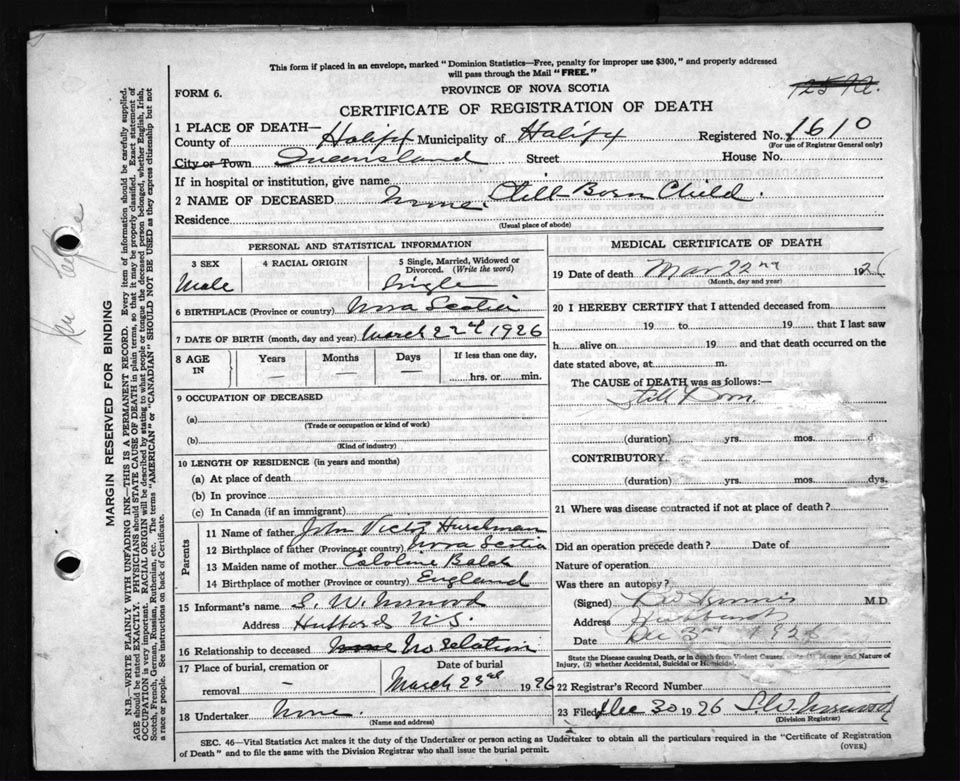 This form if placed in an envelope, marked "Dominion Statistics—Free, penalty for improper use $300," and properly addressed
will pass through the Mail "FREE."
FORM 6.
PROVINCE OF NOVA SCOTIA
CERTIFICATE OF REGISTRATION OF DEATH
1 PLACE OF DEATH—
County of Halifx Municipality of Halifx Registered No. 1610
(For use of Registrar General only)
City or Town Queensland Street House No.
If in hospital or institution, give name
2 NAME OF DECEASED None. Still Born Child.
Residence
(Usual place of abode)
MARGIN RESERVED FOR BINDING
N.B.—WRITE PLAINLY WITH UNFADING INK—THIS IS A PERMANENT RECORD. Every item of information should be carefully supplied.
AGE should be stated EXACTLY. PHYSICIANS should STATE CAUSE OF DEATH in plain terms, so that it may be properly classified. Exact statement of
OCCUPATION is very important. RACIAL ORIGIN will be described by stating to what people or tongue the deceased person belonged, whether English, Irish,
Scotch, French, German, Russian, Ruthenian, etc. The terms "AMERICAN" or "CANADIAN" SHOULD NOT BE USED as they express citizenship but not
a race or people. See instructions on back of Certificate.
PERSONAL AND STATISTICAL INFORMATION
3 SEX 4 RACIAL ORIGIN 5 Single, Married, Widowed or
Divorced. (Write the word)
Male Single
6 BIRTHPLACE (Province or country) Nova Scotia
7 DATE OF BIRTH (month, day and year) March 22nd 1926
8 AGE IN Years Months Days If less than one day,
— — — hrs. or min.
9 OCCUPATION OF DECEASED
(a)
(Trade or occupation or kind of work)
(b)
(Kind of industry)
10 LENGTH OF RESIDENCE (in years and months)
(a) At place of death
(b) In province
(c) In Canada (if an immigrant)
Parents
11 Name of father John
12 Birthplace of father (Province or country) Nova Scotia
13 Maiden name of mother
14 Birthplace of mother (Province or country) England
15 Informant's name S. W.
Address N.S.
16 Relationship to deceased No relation
17 Place of burial, cremation or Date of burial
removal — March 23rd 1926
18 Undertaker None.
(Name and address)
MEDICAL CERTIFICATE OF DEATH
19 Date of death Mar 22nd 192
(Month, day and year)
20 I HEREBY CERTIFY that I attended deceased from
19 to 19 that I last saw
h alive on 19 and that death occurred on the
date stated above, at m.
The CAUSE of DEATH was as follows:—
Still Born
(duration) yrs. mos. d
CONTRIBUTORY
(duration) yrs. mos. dys.
21 Where was disease contracted if not at place of death?
Did an operation precede death? Date of
Nature of operation
Was there an autopsy?
(Signed) M D
Address
Date Dec 1926
State the Disease causing Death, or in death from Violent Causes, state (1) Means and Nature of
Injury, (2) whether Accidental, Suicidal or Homicidal.
22 Registrar's Record Number
23 Filed Dec 30 1926 S.W.
(Division Registrar)
SEC. 46—Vital Statistics Act makes it the duty of the Undertaker or person acting as Undertaker to obtain all the particulars required in the "Certificate of Registration
of Death" and to file the same with the Division Registrar who shall issue the burial permit.
(OVER)